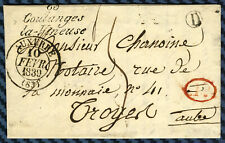 88
Coulanges
la-Vineuse
AUXERRE
10
FEVR.
1839
(83)
Monsieur Chanoine
Notaire rue de
la monnaie, n° 41
Troyes
aube